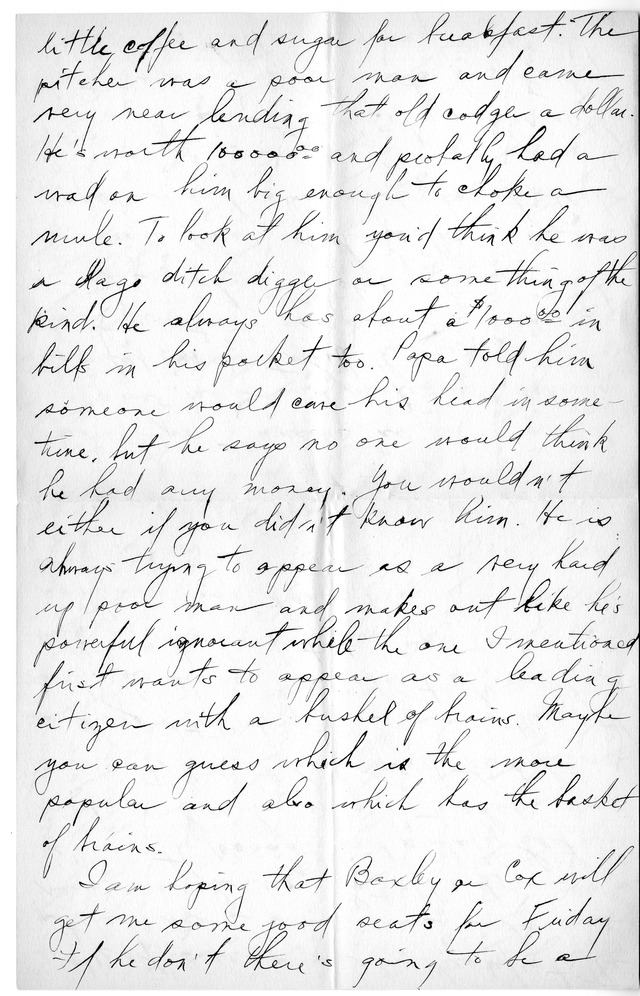 little coffee and sugar for breakfast. The
pitcher was a poor man and came
very near lending that old codger a dollar.
He's worth 100000⁰⁰ and probally had a
wad on him big enough to choke a
mule. To look at him you'd think he was
a Dago ditch digger or something of the
kind. He always has about a $1000⁰⁰ in
bills in his pocket too. Papa told him
someone would cave his head in some-
time, but he says no one would think
he had any money. You wouldn't
either if you didn't know him. He is
always trying to appear as a very hard
up poor man and makes out like he's
powerful ignorant while the one I mentioned
first wants to appear as a leading
citizen with a bushel of brains. Maybe
you can guess which is the more
popular and also which has the basket
of brains.
I am hoping that Baxley or Cox will
get me some good seats for Friday
If he don't there's going to be a